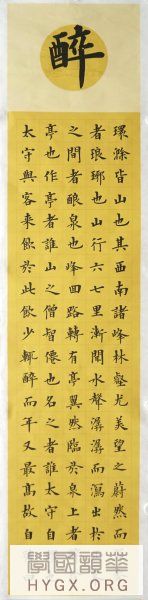 醉
環滁皆山也其西南諸峰林壑尤美望之蔚然而
者琅琊也山行六七里漸聞水聲潺潺而瀉出於
之間者釀泉也峰回路轉有亭翼然臨於泉上者
亭也作亭者誰山之僧智僊也名之者誰太守自
太守與客來飲於此飲少輒醉而年又最高故自
華韻國學
HYGX.ORG